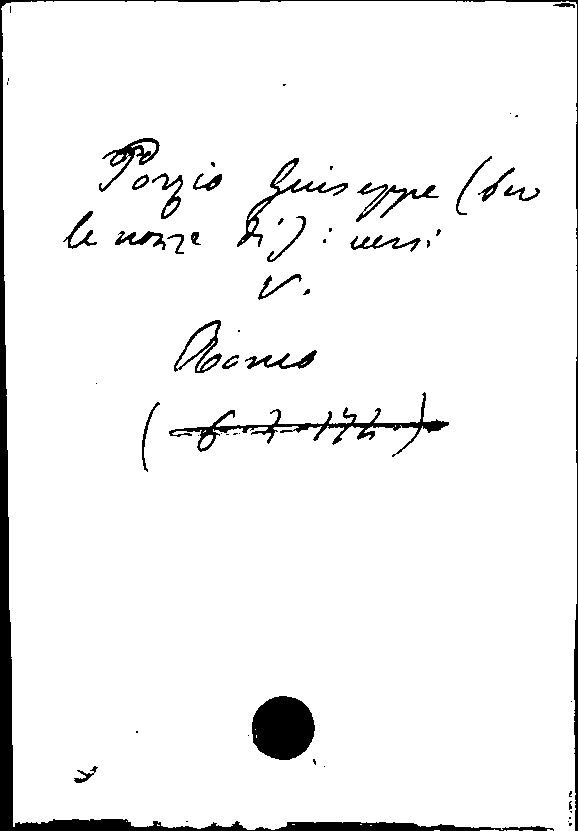 Porzio Giuseppe (per
le nozze di) : versi
V.
Romeo